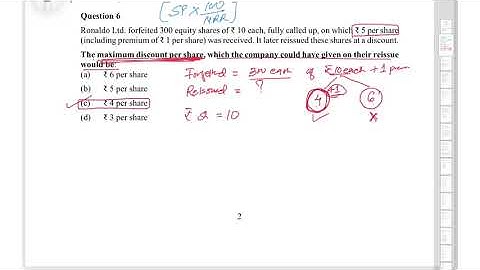 [SP × 100/NRR]
Question 6
Ronaldo Ltd. forfeited 300 equity shares of ₹ 10 each, fully called up, on which ₹ 5 per share
(including premium of ₹ 1 per share) was received. It later reissued these shares at a discount.
The maximum discount per share, which the company could have given on their reissue
would be:
(a) ₹ 6 per share
(b) ₹ 5 per share
(c) ₹ 4 per share
(d) ₹ 3 per share
Forfeited = 300 each of ₹ 10 each + 1 prem
Reissued = ?
4 +1 6
= 10
2